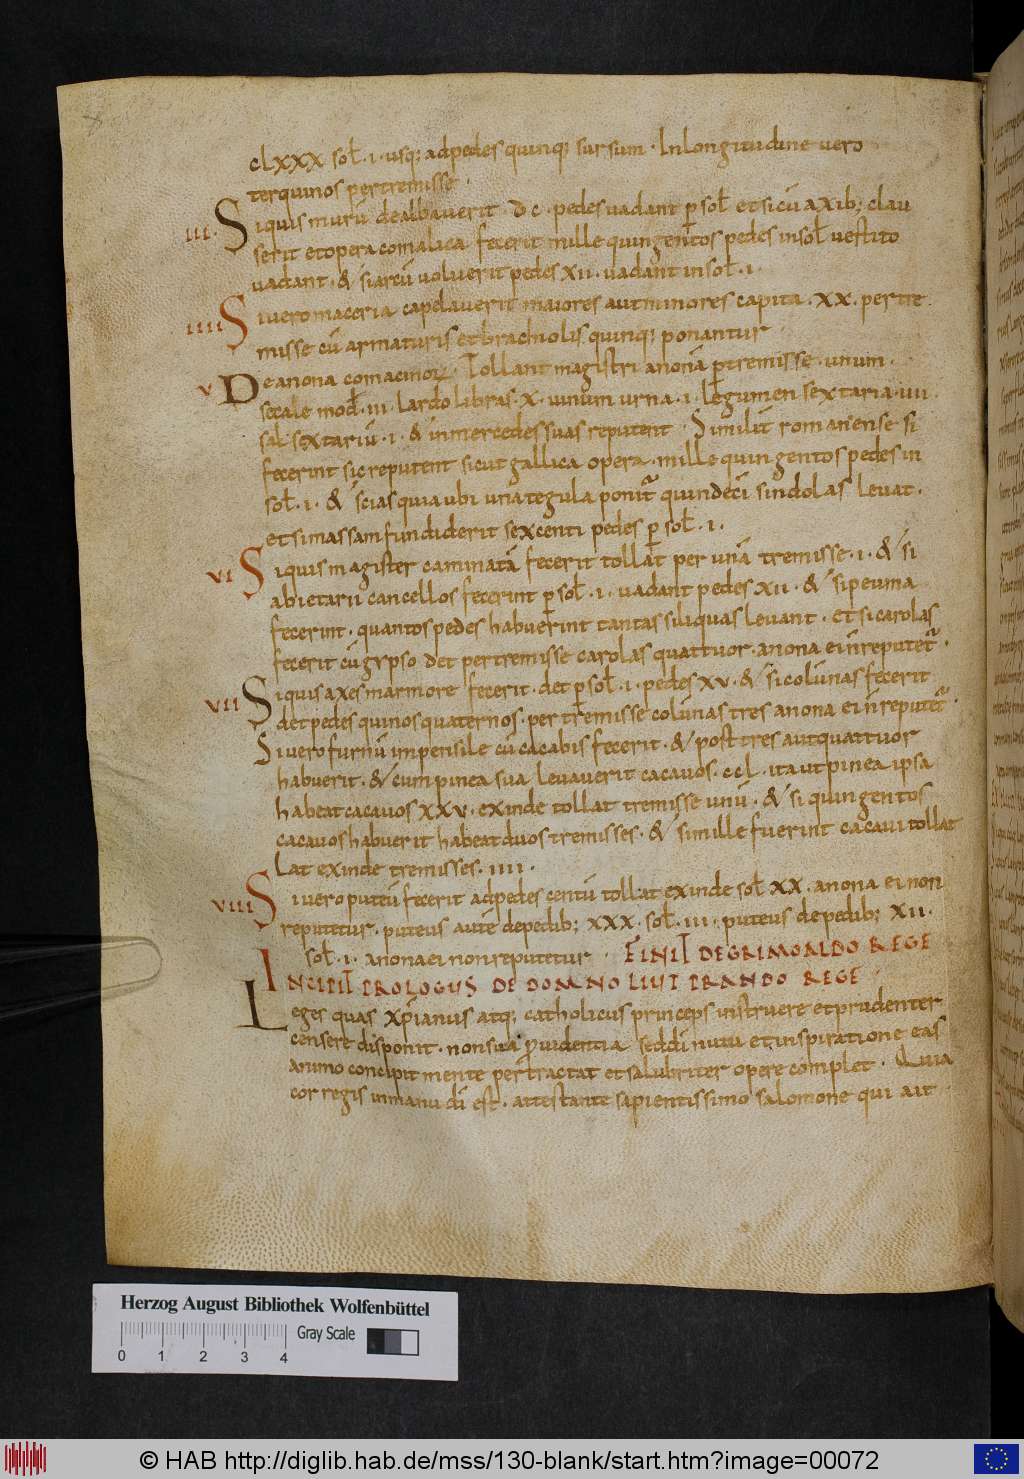 clxxx sol̄ · i · usq; adpedes quinq; sursum · Inlongitudine vero
terquinos pertremisse ·
iii · Siquis murū dealbaverit · dc · pedes vadant p̄ sol̄ et si cū axib; clau
serit et opera comalica fecerit mille quingentos pedes insol̄ vestito
vadant · & siarcū volverit pedes xii · vadant in sol̄ · i ·
iiii Sivero maceria capelaverit maiores aut minores capita · xx · pertre
misse cū armaturis et brachiolis quinq; ponantur
v De anona comacinor Tollant magistri anonā p̄tremisse · unum ·
secale mod̄ · iii lardo libras · x · vinum urna · i · legumen sextaria · iiii
sal sextariū · i · & inmercedes suas reputent · Similit romanense si
fecerint sic reputent sicut gallica opera · mille quingentos pedes in
sol̄ · i · & scias quia ubi una tegula ponit quindeci sindolas levat ·
et si massam fundiderit sexcenti pedes p̄ sol̄ · i ·
vi Siquis magister caminatā fecerit tollat per unā tremisse · i · & si
abietariī cancellos fecerint p̄ sol̄ · i · vadant pedes xii · & si peuma
fecerint · quantos pedes habuerint tantas siliquas levant · et si carolas
fecerit cū gypso det per tremisse carolas quattuor · anona ei n̄ reputet ·
vii Siquis axes marmore fecerit · det p̄ sol̄ · i · pedes xv · & si colūnas fecerit
det pedes quinos quaternos · per tremisse colūnas tres anona ei n̄ reputet ·
Sivero furnū inpensile cū cacabis fecerit · & post tres aut quattuor
habuerit · & cum pinea sua levaverit cacavos · ccl · ita ut pinea ipsa
habeat cacavos xxv · exinde tollat tremisse unū · & si quingentos
cacavos habuerit habeat duos tremisses · & si mille fuerint cacavi tollat
Lat exinde tremisses · iiii ·
viii Sivero puteū fecerit adpedes centū tollat exinde sol̄ xx · anona ei non
reputetur · puteus autē depedib; xxx · sol̄ · iii · puteus de pedib; xii ·
sol̄ · i · anona ei non reputetur · FINIT DEGRIMOALDO REGE
INCIPIT PROLOGUS DE DOMNO LIUTPRANDO REGE ·
Leges quas xp̄ianus atq; catholicus princeps instruere et prudenter
censere disponit · non sua p̄videntia sed di nutu et inspiratione eas
animo concipit mente pertractat et salubriter opere complet · Quia
cor regis in manu di est · attestante sapientissimo salomone qui ait ·
Herzog August Bibliothek Wolfenbüttel
Gray Scale
0 1 2 3 4
© HAB http://diglib.hab.de/mss/130-blank/start.htm?image=00072